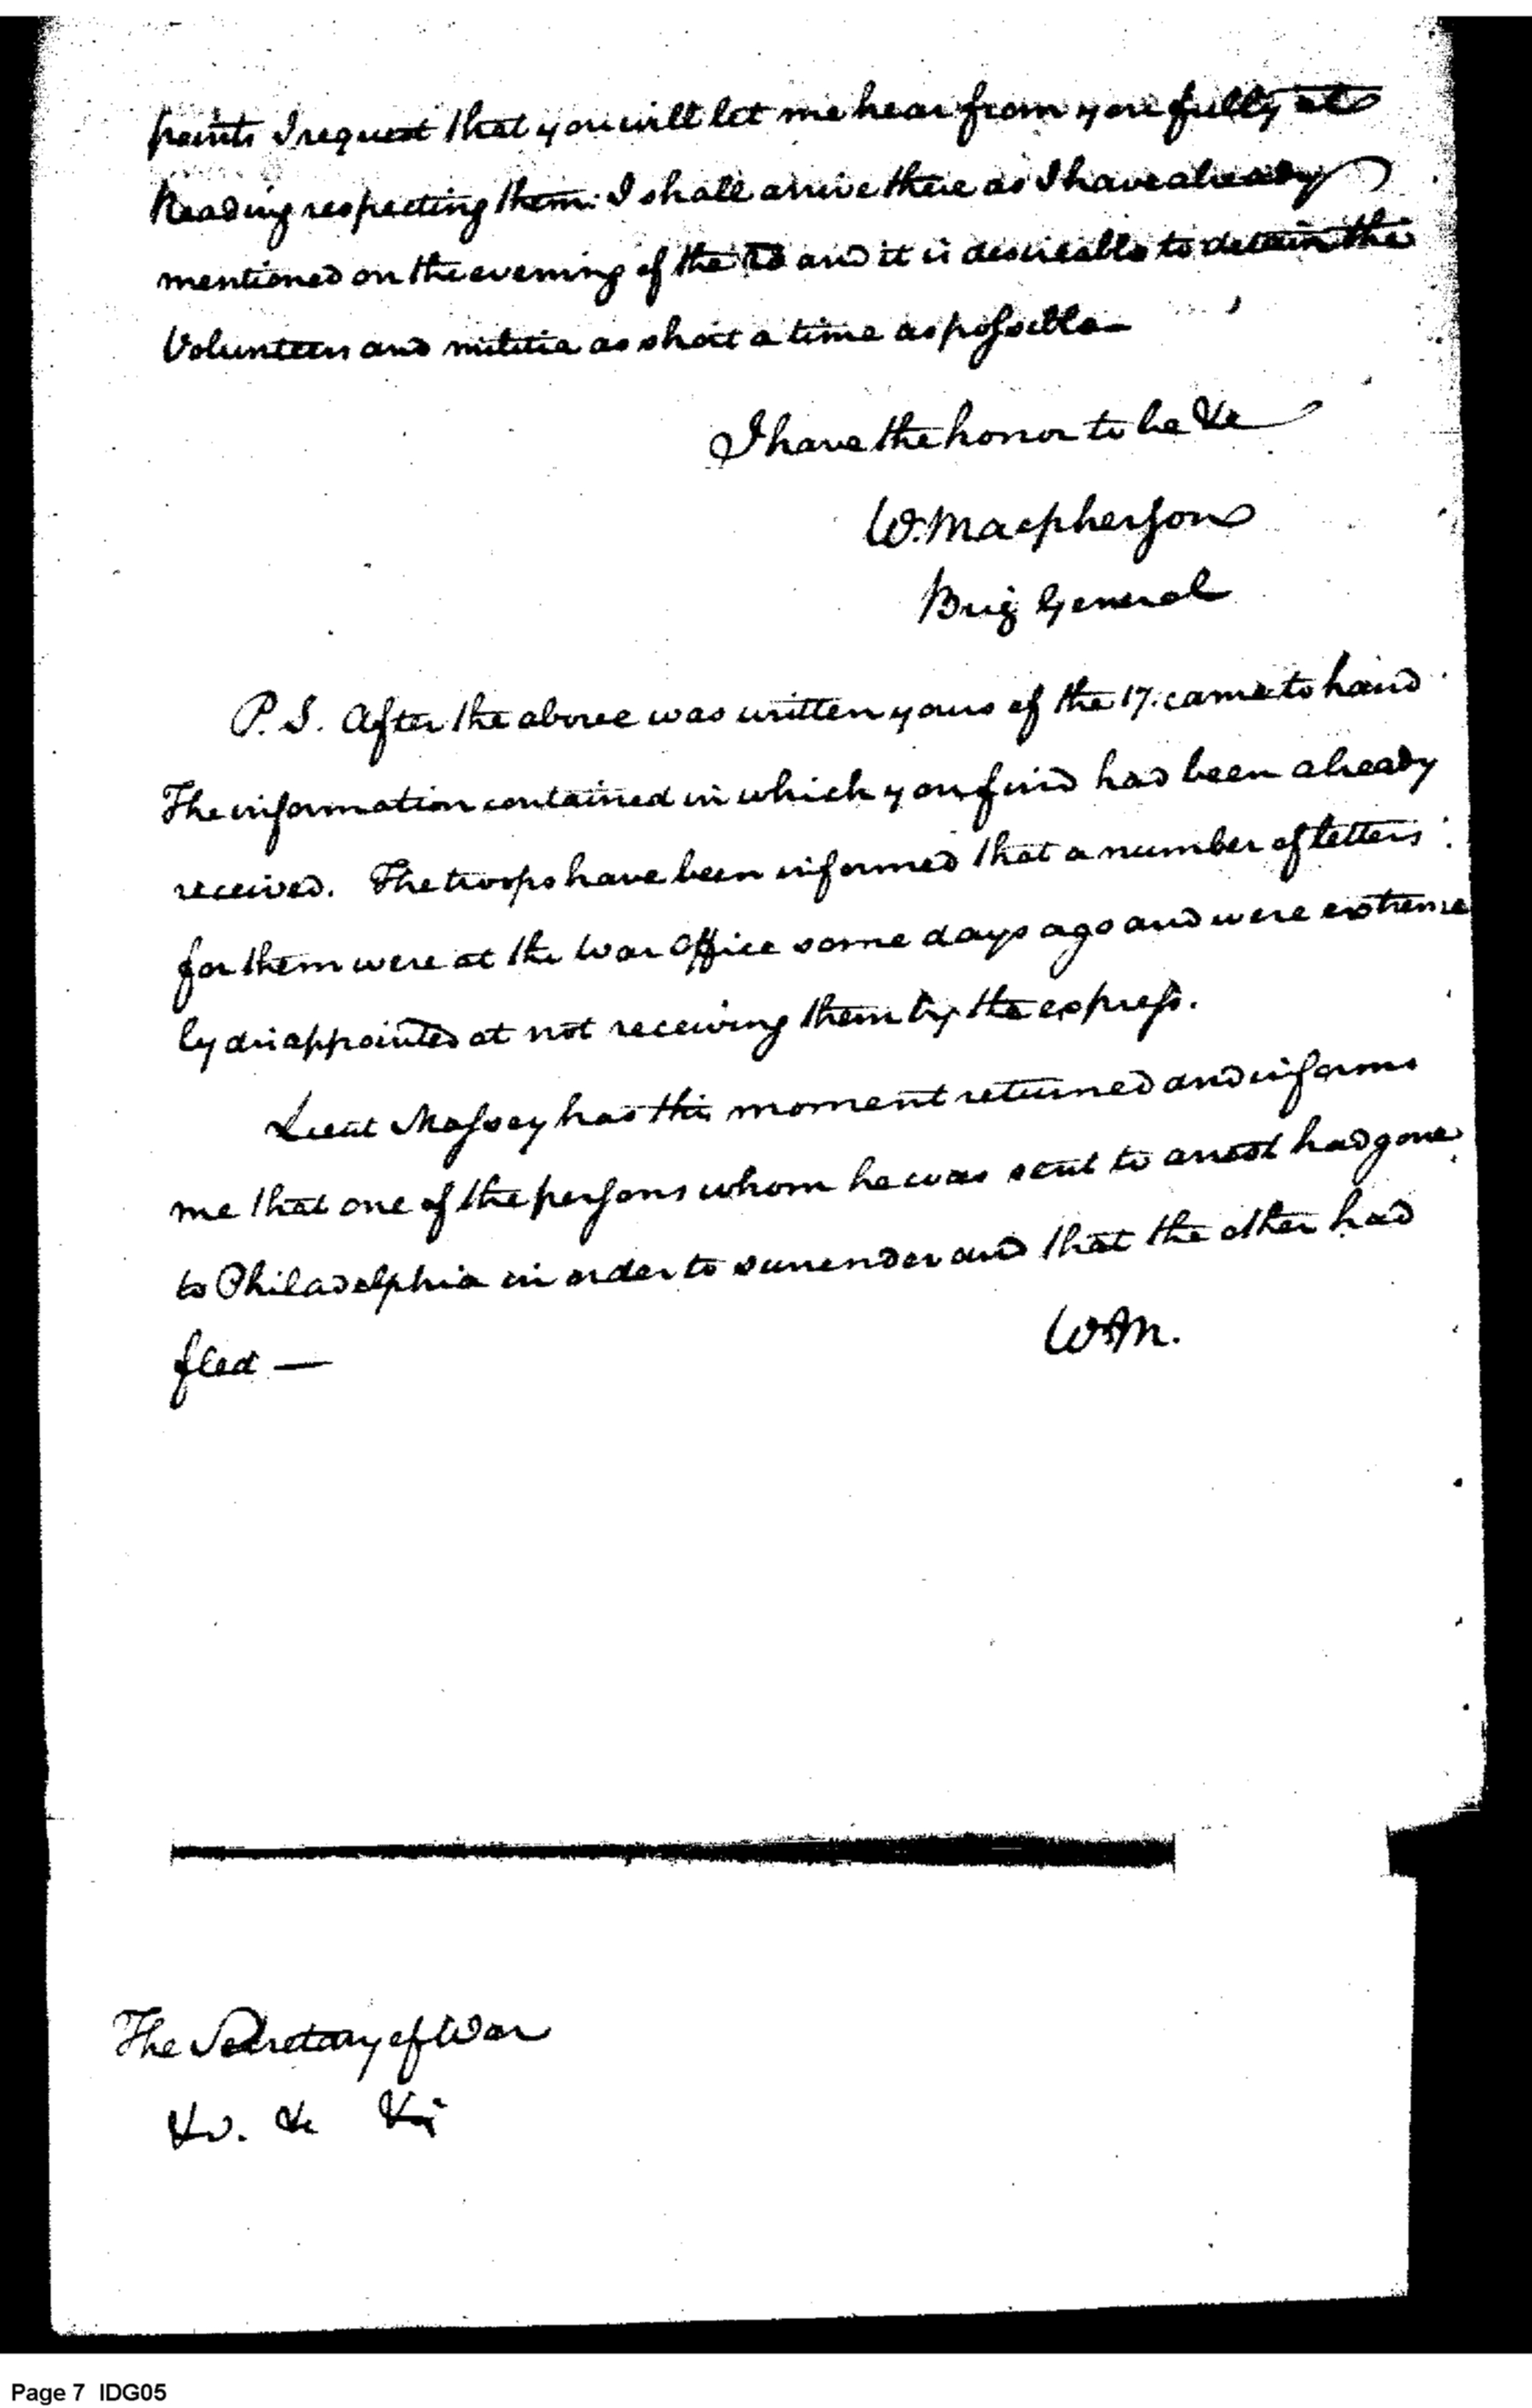 points I request that you will let me hear from you fully at
Reading respecting them. I shall arrive there as I have already
mentioned on the evening of the and it is desireable to detain the
Volunteers and militia as short a time as possible—
I have the honor to be &c
W. Macpherson
Brig General
P.S. After the above was written yours of the 17. came to hand
The information contained in which you find had been already
received. The troops have been informed that a number of letters
for them were at the War Office some days ago and were extreme
ly disappointed at not receiving them by the express.
Lieut Massey has this moment returned and informs
me that one of the persons whom he was sent to arrest had gone
to Philadelphia in order to surrender and that the other had
fled —
W M.
The Secretary of War
&c. &c &c
Page 7 IDG05